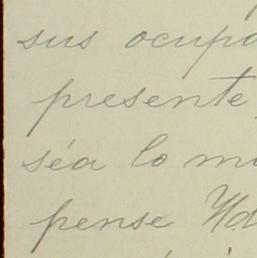 sus ocupa
presente,
séa lo m
pense Yd